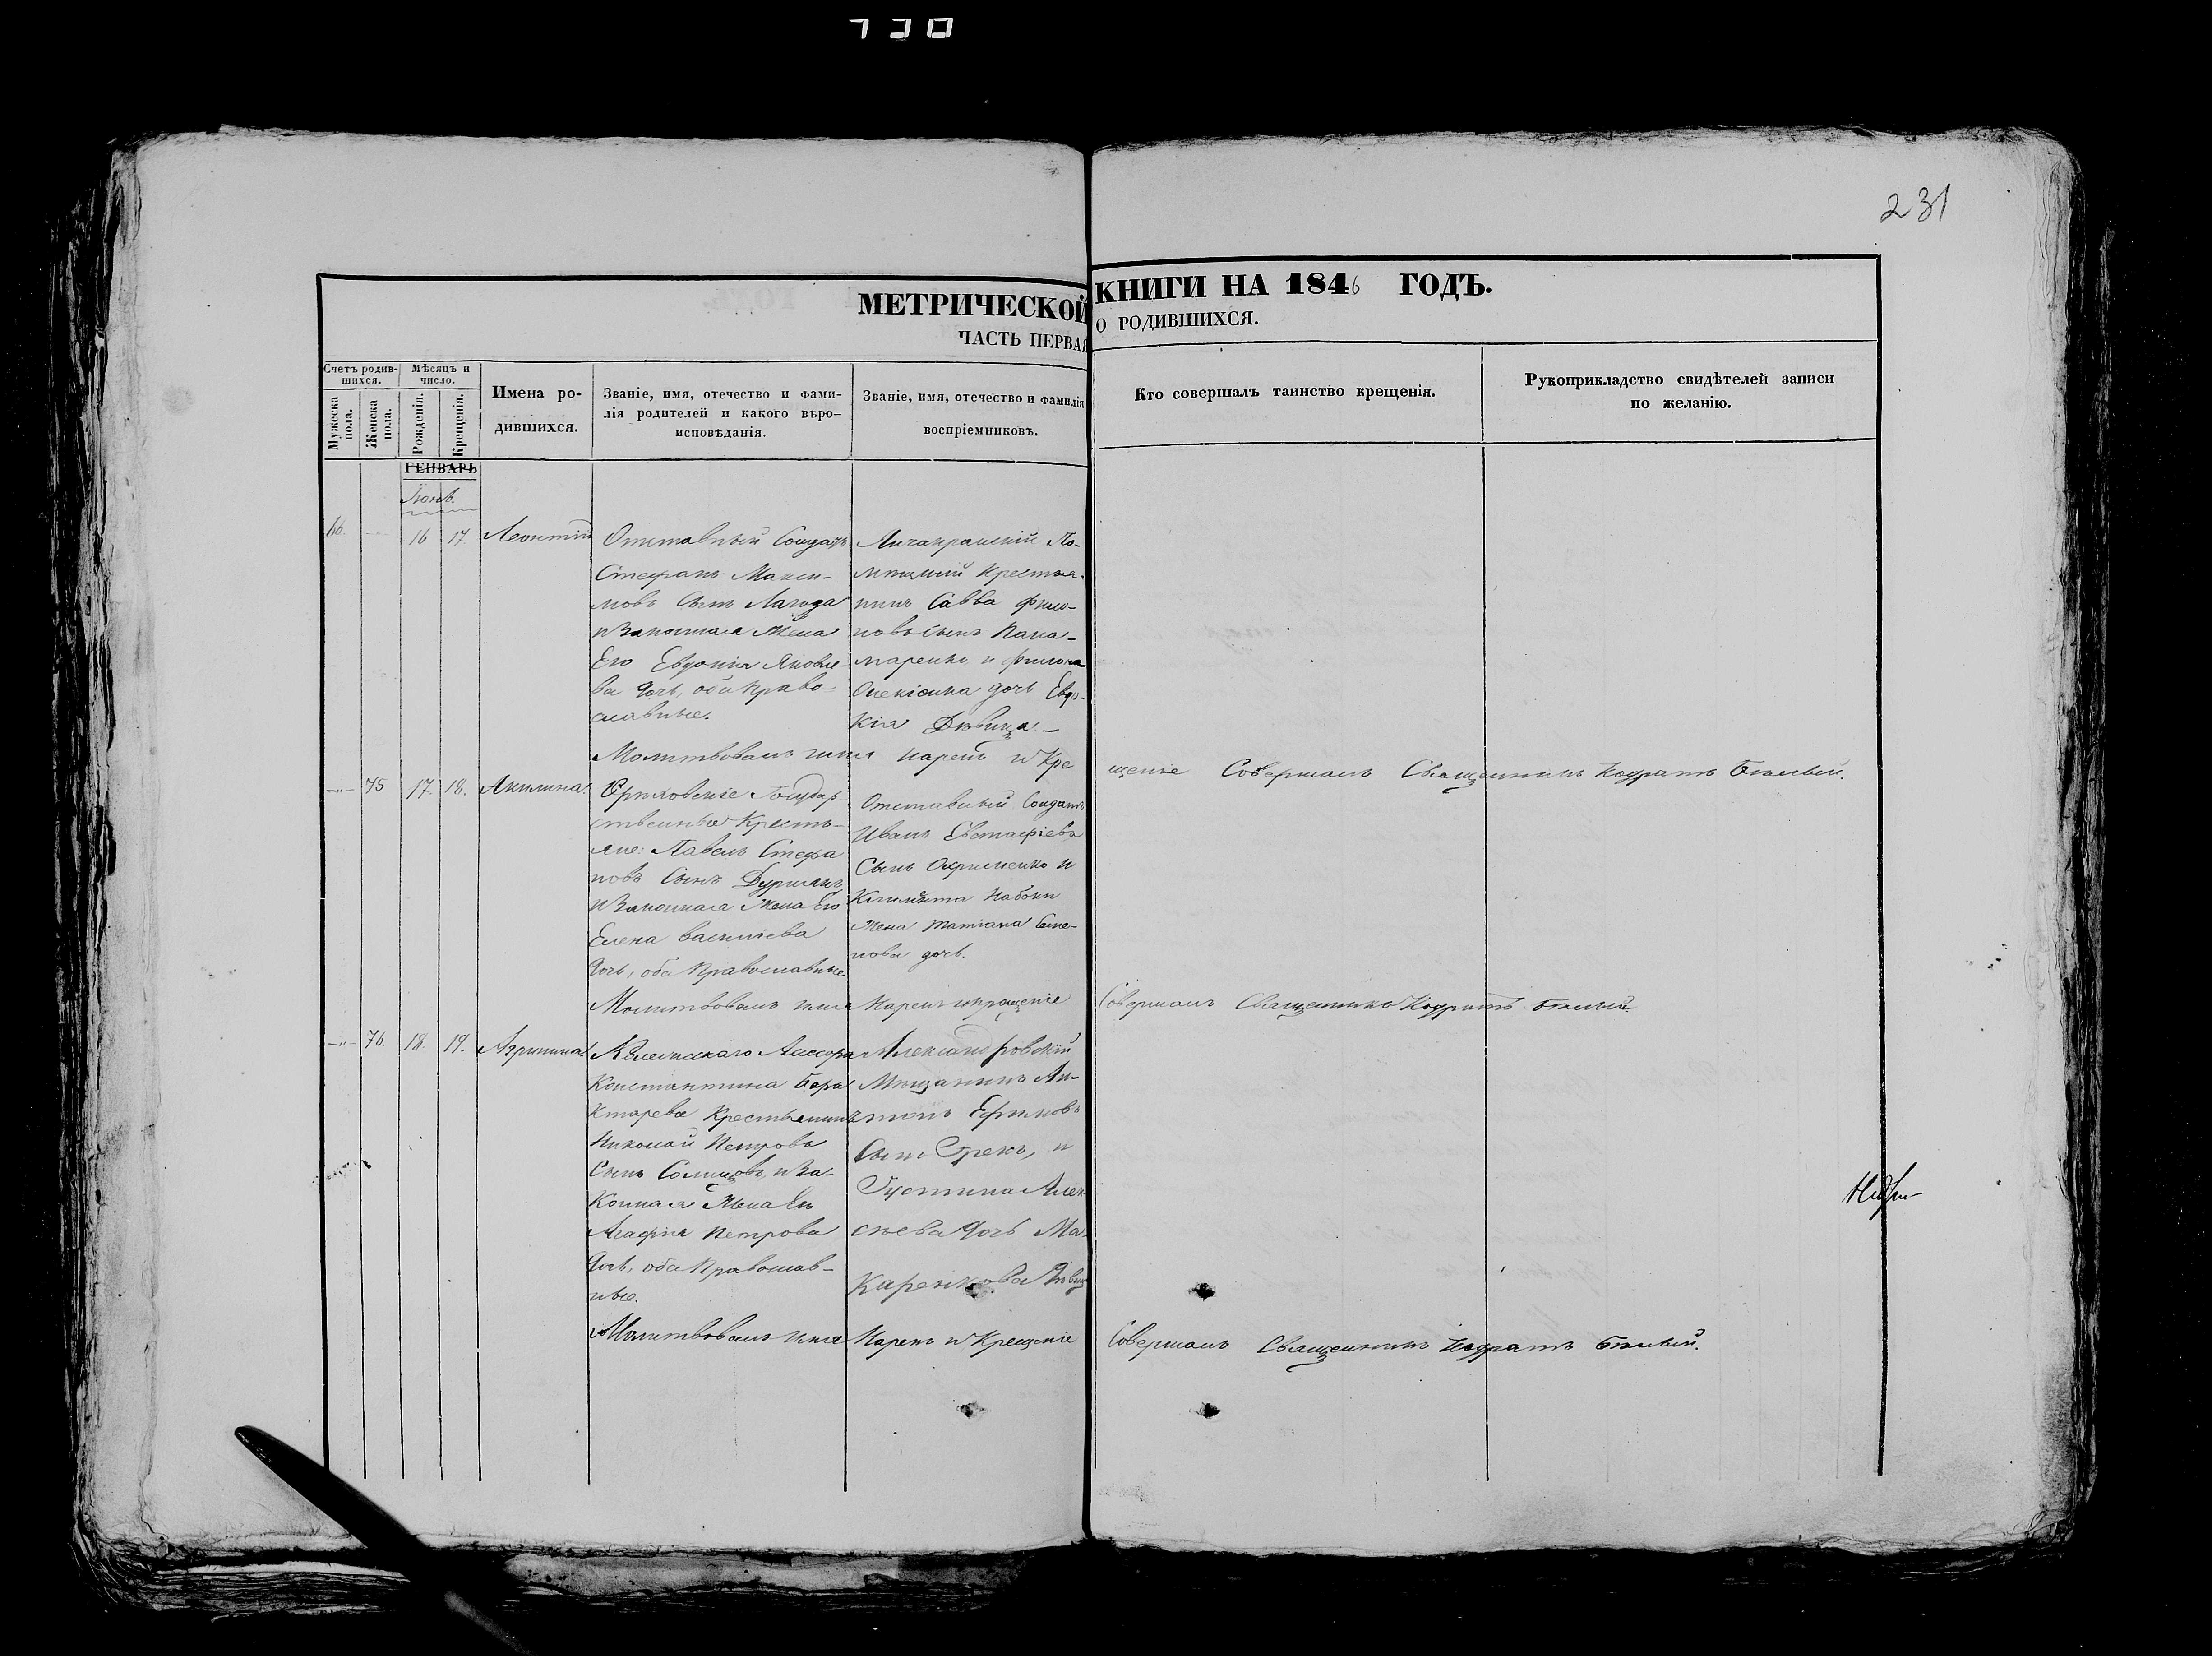 730
231
МЕТРИЧЕСКОЙ КНИГИ НА 1846 ГОДЪ.
ЧАСТЬ ПЕРВАЯ О РОДИВШИХСЯ.
Счетъ родив-
шихся.
Мужеска пола.
Женска пола.
Мѣсяцъ и
число.
Рожденія.
Крещенія.
Имена ро-
дившихся.
Званіе, имя, отечество и фами-
лія родителей и какого вѣро-
исповѣданія.
Званіе, имя, отечество и фамилія
воспріемниковъ.
Кто совершалъ таинство крещенія.
Рукоприкладство свидѣтелей записи
по желанію.
ГЕНВАРЬ
16 17 Леонтій
Отставный Солдатъ
Стефанъ Макси-
мовъ Сынъ Лагода
и Законная Жена
Его Евдокія Яковле-
ва дочь, оба Право-
славные.
Крестья-
нинъ Савва Фили-
повъ сынъ Пана-
маренко и Филипа
дочь Евдо-
кія Дѣвица
Молитвовалъ имя нарекъ и Кре
щеніе Совершалъ Священникъ Кодратъ Бѣлый.
75 17 18. Акилина.
Государ-
ственные Крестья-
яне: Павелъ Стефа
новъ Сынъ
и Законная Жена Его
Елена Василіева
дочь, оба Православные.
Отставный Солдатъ
Иванъ Евстафіевъ
Сынъ Охрименко и
Набоки
Жена Татіана Семе-
нова дочь.
Молитвовалъ имя Нарекъ и крещеніе
Совершалъ Священникъ Кодратъ Бѣлый
76. 18. 19. Агрипина
Колежскаго Ассесора
Константина Бара
Крестьянинъ
Николай Петровъ
Сынъ и За-
конная Жена Его
Агафія Петрова
дочь, оба Православ-
ные.
Александровскій
Мѣщанинъ Ан-
тонъ Ефимовъ
Сынъ Грекъ, и
Густина Алек
сѣева дочь Ма
каренкова Дѣвиц
Молитвовалъ имя Нарекъ и Крещеніе
Совершалъ Священникъ Кодратъ Бѣлый.